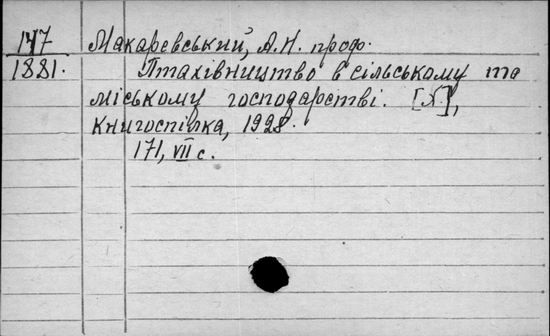 147 Макаревський, А.Н. проф.
1881. Птахівництво в сільському та
міському господарстві. [Х],
Книгоспілка, 1928.
171, VII с.